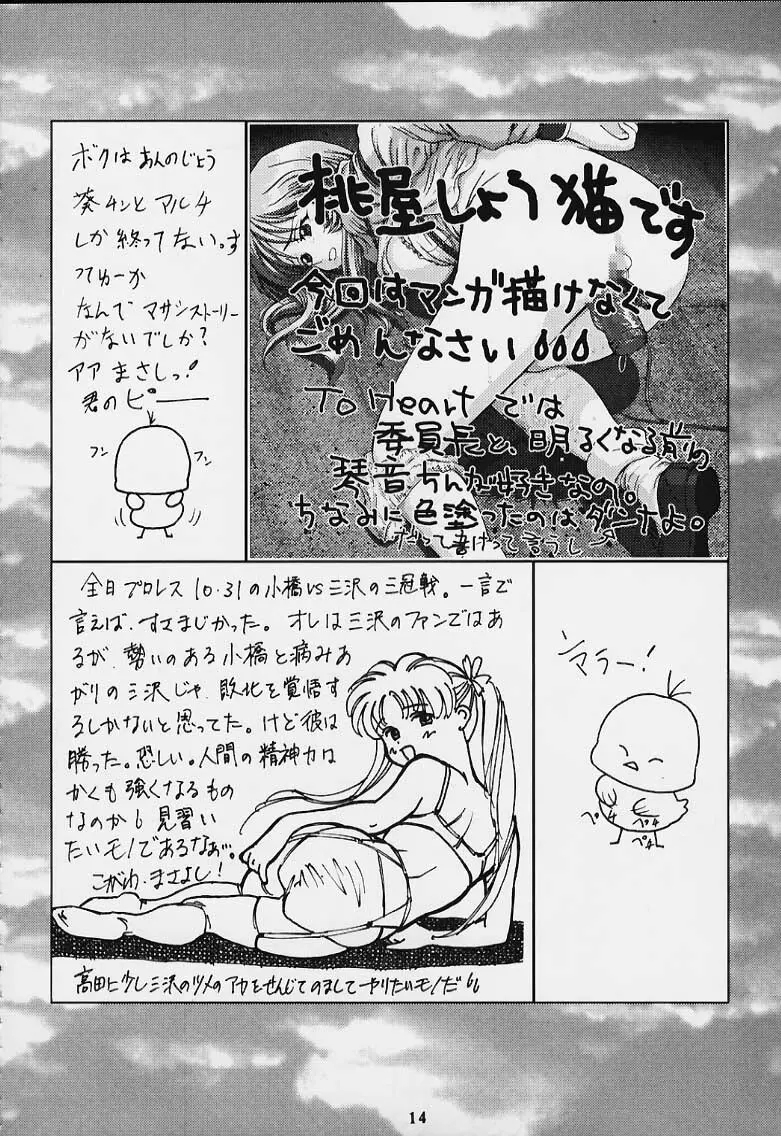 ボクは あんのじょう
葵チンと マルチ
しか 終ってない。す
つてゅーか
なんで マサシストーリー
がないでしか?
アア まさしっ!
君のピ――
フン
フン
桃屋しょう猫です
今回はマンガ描けなくて
ごめんなさい
To Heart では
委員長と、明るくなる前の
琴音ちんが好きなの。
ちなみに色塗ったのはダンナよ。
だって書けって言うし
全日プロレス 10.31の小橋VS三沢の三冠戦。一言で
言えば、すさまじかった。オレは三沢のファンではあ
るが、勢いのある小橋と病みあ
がりの三沢じゃ、敗北を覚悟す
るしかないと思ってた。けど彼は
勝った。恐しい。人間の精神力は
かくも強くなるもの
なのか。見習い
たいモノであるなぁ…。
こがわ まさよし!
高田に少し三沢のツメのアカをせんじてのましてやりたいモノだ
マラー!
ペチ
ペチ
ペチ
14